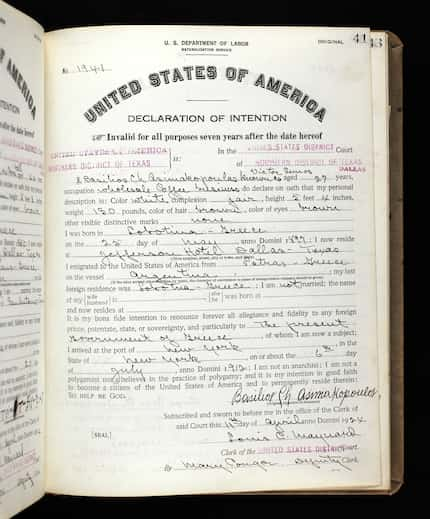 U. S. DEPARTMENT OF LABOR
NATURALIZATION SERVICE
ORIGINAL
41
No. 1941
UNITED STATES OF AMERICA
DECLARATION OF INTENTION
Invalid for all purposes seven years after the date hereof
UNITED STATES OF AMERICA
NORTHERN DISTRICT OF TEXAS
ss:
In the UNITED STATES DISTRICT Court
of NORTHERN DISTRICT OF TEXAS
DALLAS
I, Basilios Ch Asimakopoulos known as Victor Simos aged 27 years,
occupation wholesale Coffee business do declare on oath that my personal
description is: Color white, complexion fair, height 5 feet 4 inches,
weight 150 pounds, color of hair brown, color of eyes brown
other visible distinctive marks none
I was born in - Greece
on the 25 day of May, anno Domini 1897; I now reside
at Jefferson Hotel Dallas - Texas
I emigrated to the United States of America from Patras - Greece
on the vessel Argentina; my last
foreign residence was - Greece; I am not married; the name
of my wife husband is ; she he was born at
and now resides at
It is my bona fide intention to renounce forever all allegiance and fidelity to any foreign
prince, potentate, state, or sovereignty, and particularly to The present
Government of Greece, of whom I am now a subject;
I arrived at the port of New York, in the
State of New York, on or about the 6th day
of July, anno Domini 1912; I am not an anarchist; I am not a
polygamist nor a believer in the practice of polygamy; and it is my intention in good faith
to become a citizen of the United States of America and to permanently reside therein:
SO HELP ME GOD.
Basilios Ch Asimakopoulos
Subscribed and sworn to before me in the office of the Clerk of
said Court this 11th day of April anno Domini 1924
[SEAL]
Louis C Maynard
Clerk of the UNITED STATES DISTRICT Court.
By Mary Deputy Clerk.